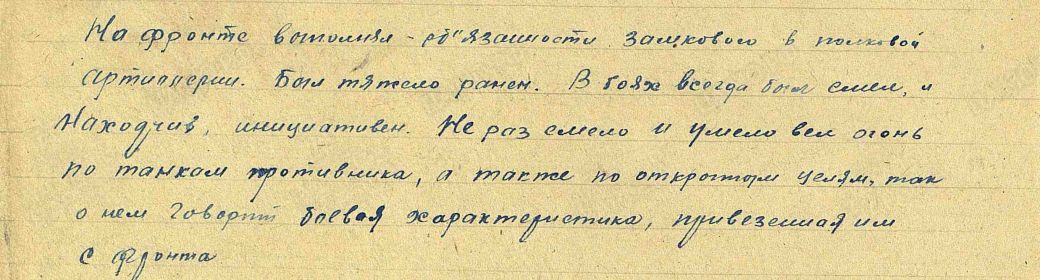 На фронте выполнял - об"язанности замкового в полковой
артиллерии. Был тяжело ранен. В боях всегда был смел, и
находчив, инициативен. Не раз смело и умело вел огонь
по танкам противника, а также по открытым целям, так
о нем говорит боевая характеристика, привезенная им
с фронта